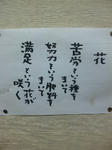 花
苦労という種を
まいて
努力という肥料を
まいて
満足という花が
咲く